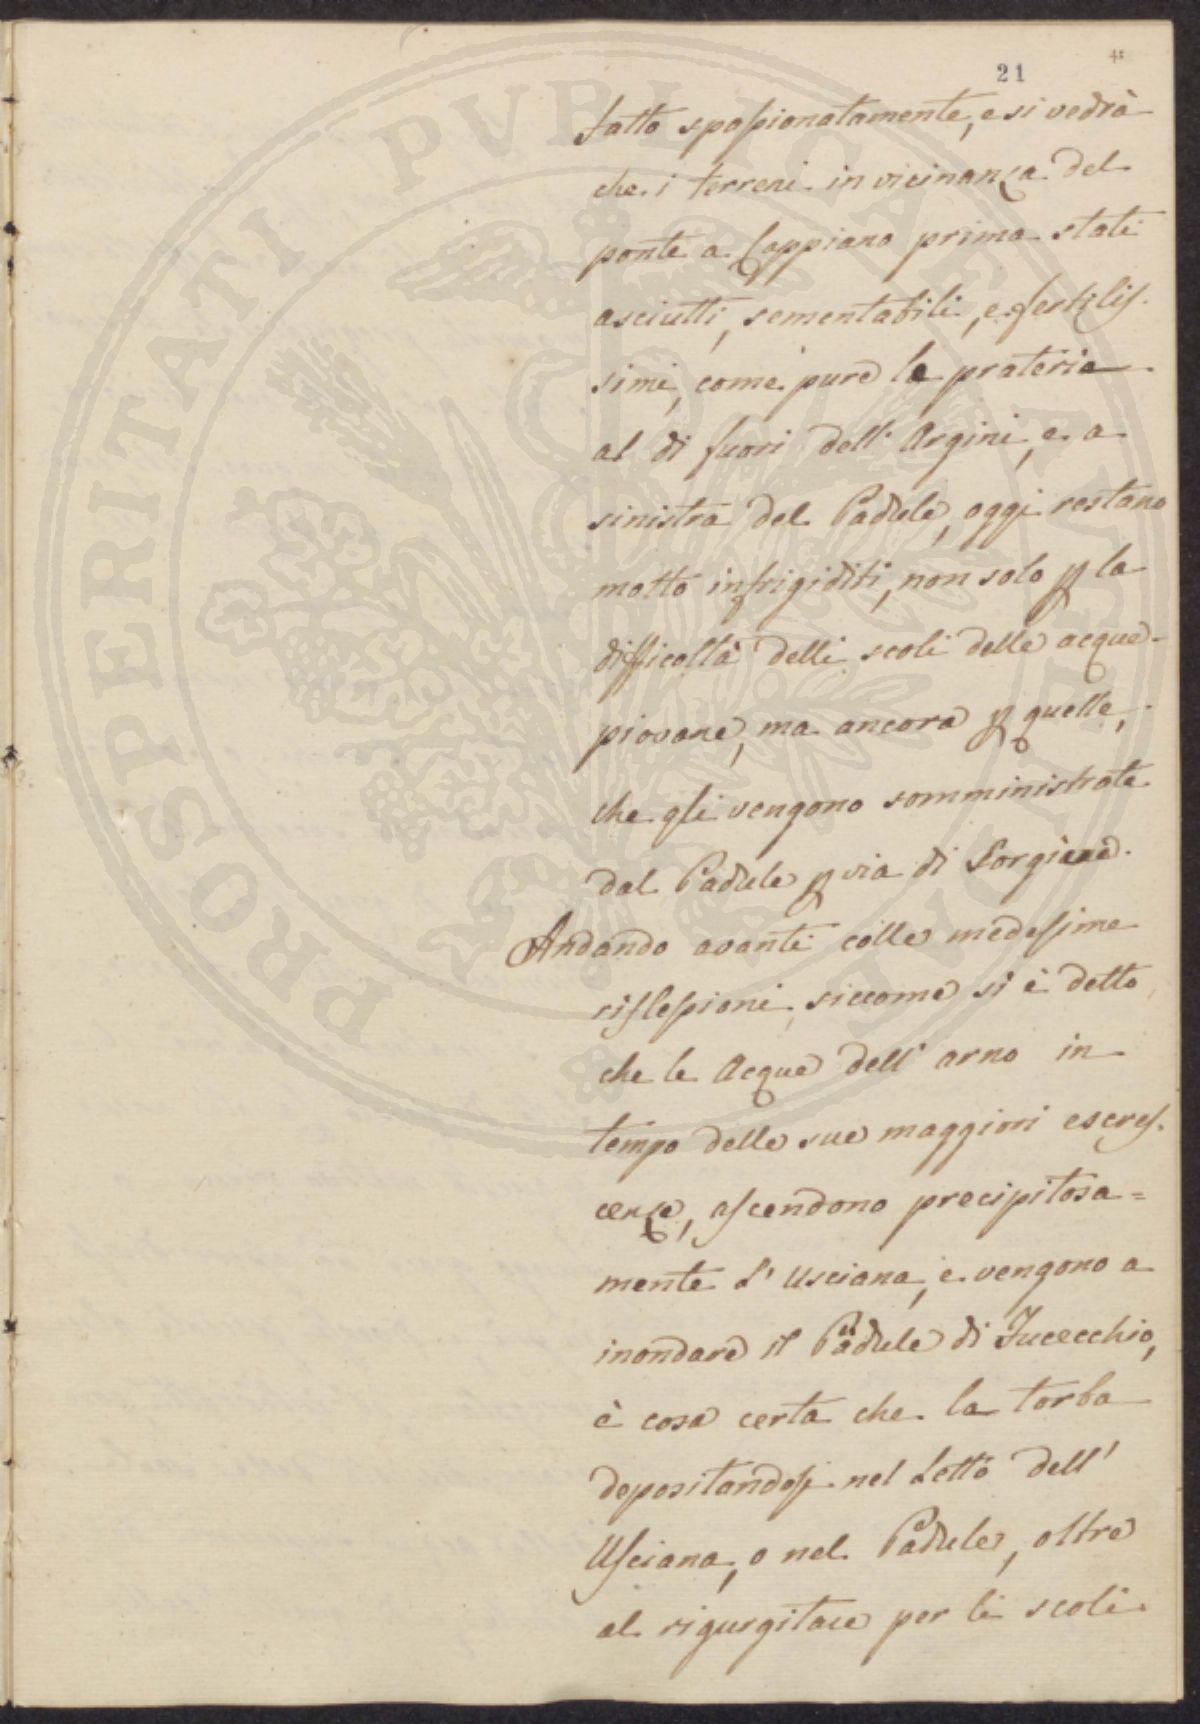 21
fatto spassionatamente, e si vedrà
che i terreni in vicinanza del
ponte a Cappiano prima stati
asciutti, sementabili, e fertilis-
simi, come pure le praterie
al di fuori dell' Argini, e a
sinistra del Padule, oggi restano
molto infrigiditi, non solo p la
difficoltà delli scoli delle acque
piovane, ma ancora p quelle,
che gli vengono somministrate
dal Padule p via di Sorgive.
Andando avanti colle medesime
riflessioni, siccome si è detto
che le Acque dell' arno in
tempo delle sue maggiori escres-
cenze, ascendono precipitosa=
mente L' Usciana, e vengono a
inondare il Padule di Fucecchio,
è cosa certa che la torba
depositandosi nel Letto dell'
Usciana, o nel Padule, oltre
al rigurgitare per li scoli
PROSPERITATI PVBLICAE